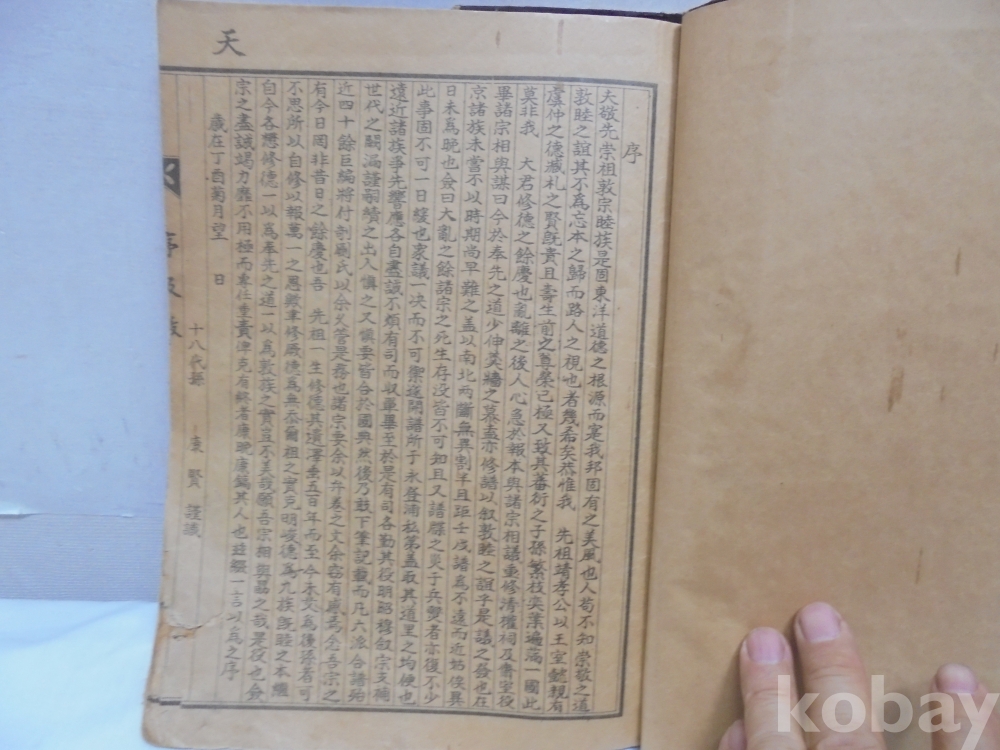 天
序
夫敬先崇祖敦宗睦族是固東洋道德之根源而寔我邦固有之美風也人苟不知崇敬之道
敦睦之誼其不爲忘本之歸而路人之視也者幾希矣恭惟我 先祖靖孝公以王室懿親有
虞仲之德臧札之賢旣貴且壽生前之尊榮已極又致其蕃衍之子孫繁枝奕葉遍滿一國此
莫非我 大君修德之餘慶也亂離之後人心急於報本與諸宗相議重修清權祠及齋室役
畢諸宗相與謀曰今於奉先之道少伸羹牆之慕盍亦修譜以叙敦睦之誼乎是議之發也在
京諸族未嘗不以時期尚早難之盖以南北兩斷無異割半且距壬戌譜爲不遠而近姑俟異
日未爲晚也僉曰大亂之餘諸宗之死生存沒皆不可知且又譜牒之灾于兵燹者亦復不少
此事固不可一日緩也衆議一决而不可禦遂開譜所于永登浦 第盖取其道里之均便也
遠近諸族爭先響應各自盡誠不煩有司而收單畢至於是有司各勤其役明昭穆叙宗支補
世代之闕漏謹嗣續之出入愼之又愼要皆合於國典然後乃敢下筆記載而凡六派合譜殆
近四十餘巨編將付剞劂氏以余欠管是務也諸宗要余以弁卷之文余竊有感焉念吾宗之
有今日罔非昔日之餘慶也吾 先祖一生修德其遺澤垂五百年而至今不艾爲後孫者可
不思所以自修以報萬一之恩敟聿修厥德爲無忝爾祖之實克明峻德爲九族旣睦之本繼
自今各懋修德一以爲奉先之道一以爲敦族之實豈不美哉願吾宗相與勗之哉是役也僉
宗之盡誠竭力靡不用極而專任重責俾克有終者康晩康鎬其人也並綴一言以爲之序
歲在丁酉菊月望 日
十八代孫 東賢 謹識
kobay